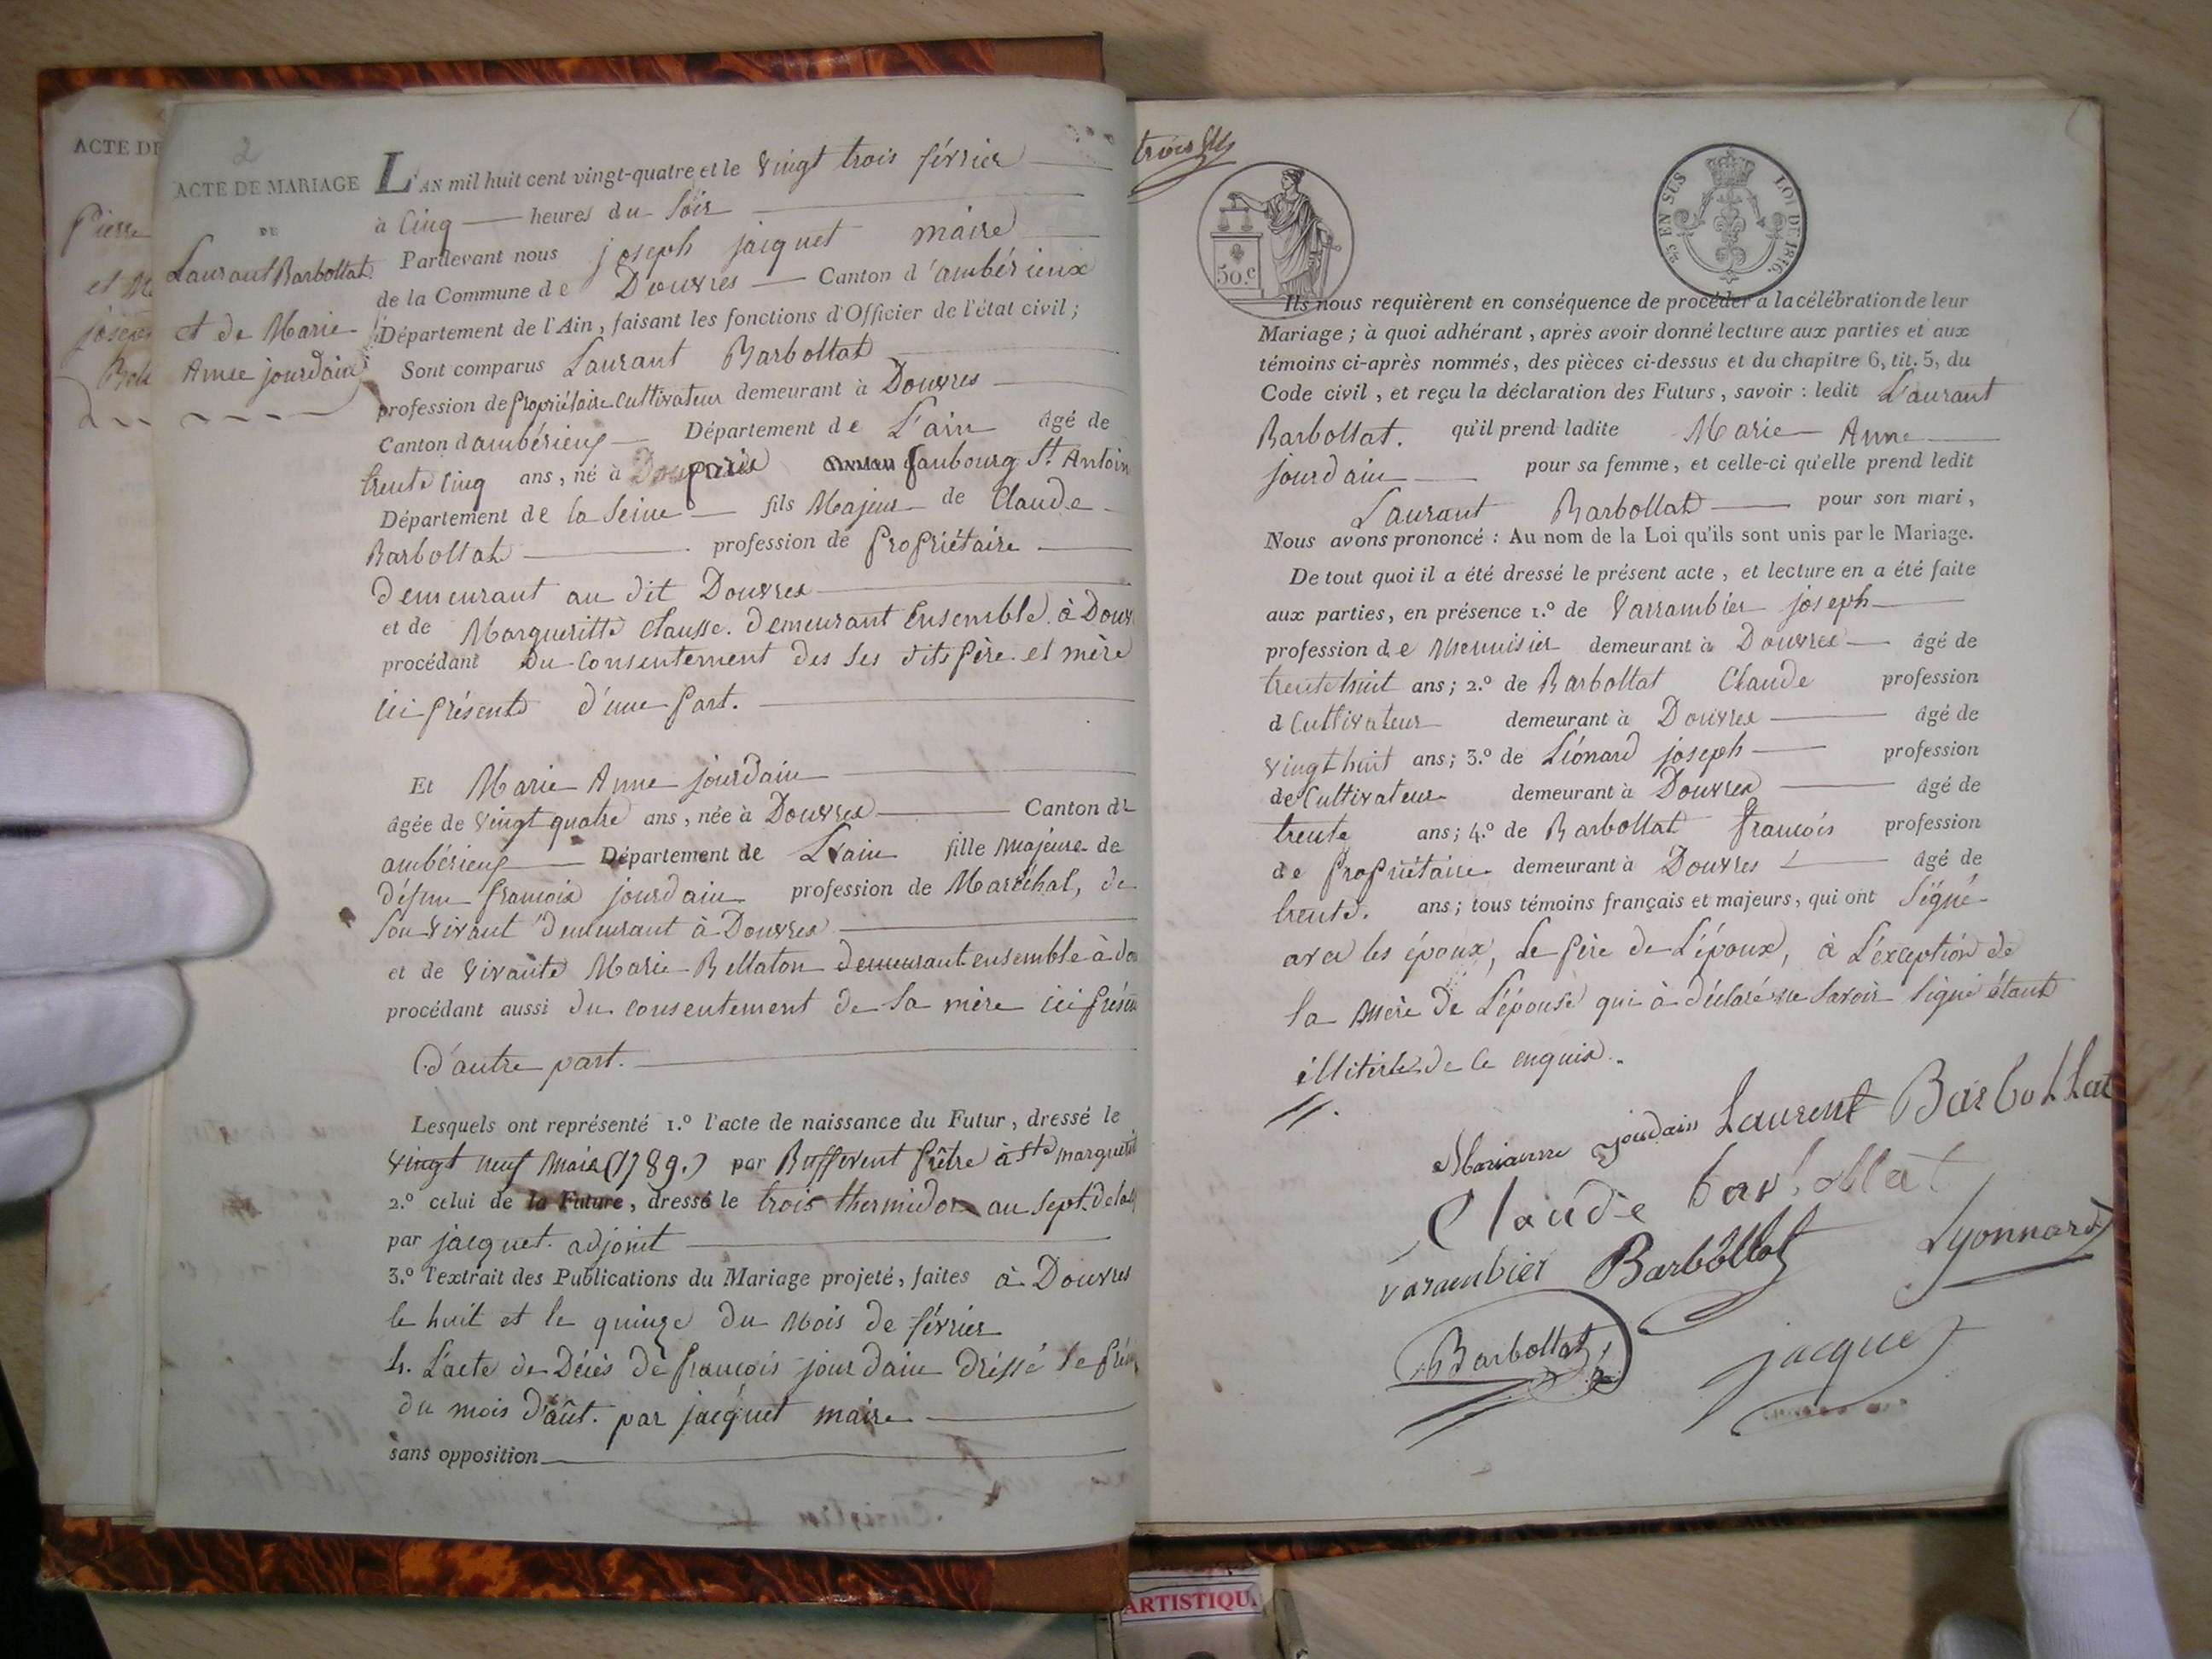 ACTE DE
Pierre
et M
joseph
2
ACTE DE MARIAGE
DE
Laurant Barbollat
et de Marie
Anne jourdain
L'AN mil huit cent vingt-quatre et le vingt trois février
à Cinq heures du Soir
Pardevant nous joseph jacquet maire
de la Commune de Douvres Canton d'ambérieux
Département de l'Ain, faisant les fonctions d'Officier de l'état civil;
Sont comparus Laurant Barbollat
profession de propriétaire Cultivateur demeurant à Douvres
Canton d'ambérieux Département de L'ain âgé de
trente cinq ans, né à paris faubourg St. Antoin
Département de la Seine fils Majeur de Claude
Barbollat profession de propriétaire
demeurant au dit Douvres
et de Margueritte Clausse. demeurant Ensemble à Douv
procédant du Consentement des ses dits père et mère
ici présents d'une part.
Et Marie Anne jourdain
âgée de vingt quatre ans, née à Douvres Canton de
ambérieux Département de L'ain fille majeure de
défun françois jourdain profession de Maréchal, de
son vivant demeurant à Douvres
et de vivante Marie Bellaton demeurant ensemble à do
procédant aussi du consentement de sa mère ici présen
d'autre part.
Lesquels ont représenté 1.º l'acte de naissance du Futur, dressé le
vingt neuf mais (1789.) par Buffevent prêtre à Ste marguerit
2.º celui de la Future, dressé le trois thermidor au sept. de la
par jacquet adjoint
3.º l'extrait des Publications du Mariage projeté, faites à Douvres
le huit et le quinze du Mois de février
4. L'acte de Décès de françois jourdain dréssé le
du mois d'aût. par jacquet maire
sans opposition
trois
50.c
25 EN SUS LOI DE 1816.
Ils nous requièrent en conséquence de procéder à la célébration de leur
Mariage; à quoi adhérant, après avoir donné lecture aux parties et aux
témoins ci-après nommés, des pièces ci-dessus et du chapitre 6, tit. 5, du
Code civil, et reçu la déclaration des Futurs, savoir: ledit Laurant
Barbollat. qu'il prend ladite Marie Anne
jourdain pour sa femme, et celle-ci qu'elle prend ledit
Laurant Barbollat pour son mari,
Nous avons prononcé: Au nom de la Loi qu'ils sont unis par le Mariage.
De tout quoi il a été dressé le présent acte, et lecture en a été faite
aux parties, en présence 1.º de Varrambier joseph
profession de Menuisier demeurant à Douvres âgé de
trente huit ans; 2.º de Barbollat Claude profession
d Cultivateur demeurant à Douvres âgé de
vingt huit ans; 3.º de Liónard joseph profession
de Cultivateur demeurant à Douvres âgé de
trente ans; 4.º de Barbollat françois profession
de propriétaire demeurant à Douvres âgé de
trente. ans; tous témoins français et majeurs, qui ont Signé
avec les époux, le père de L'époux, à L'éxception de
la mère de L'épouse qui à déclaré ne savoir signé étant
illitérés de ce enquis.
Marianne jourdain Laurent Barbollat
Claude barbollat
varambier Barbollat Lyonnard
Barbollat jacquet
ARTISTIQU